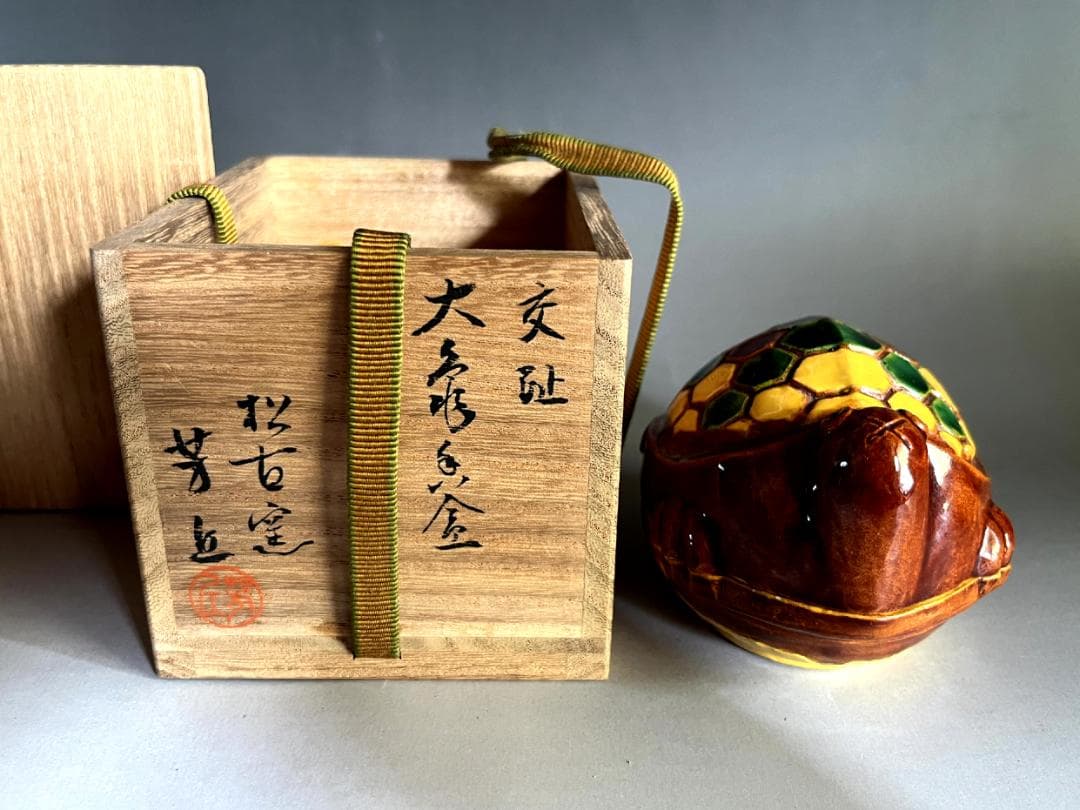 交趾
大亀香盒
松古窯
芳丘